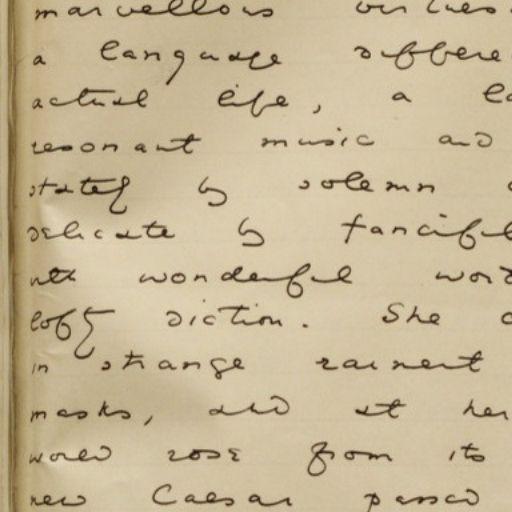 marvellous virtues
a language differe
actual life, a la
resonant music and
stately by solemn
delicate by fanciful
with wonderful word
lofty diction. She c
in strange raiment
masks, and at her
world rose from its
new Caesar passed